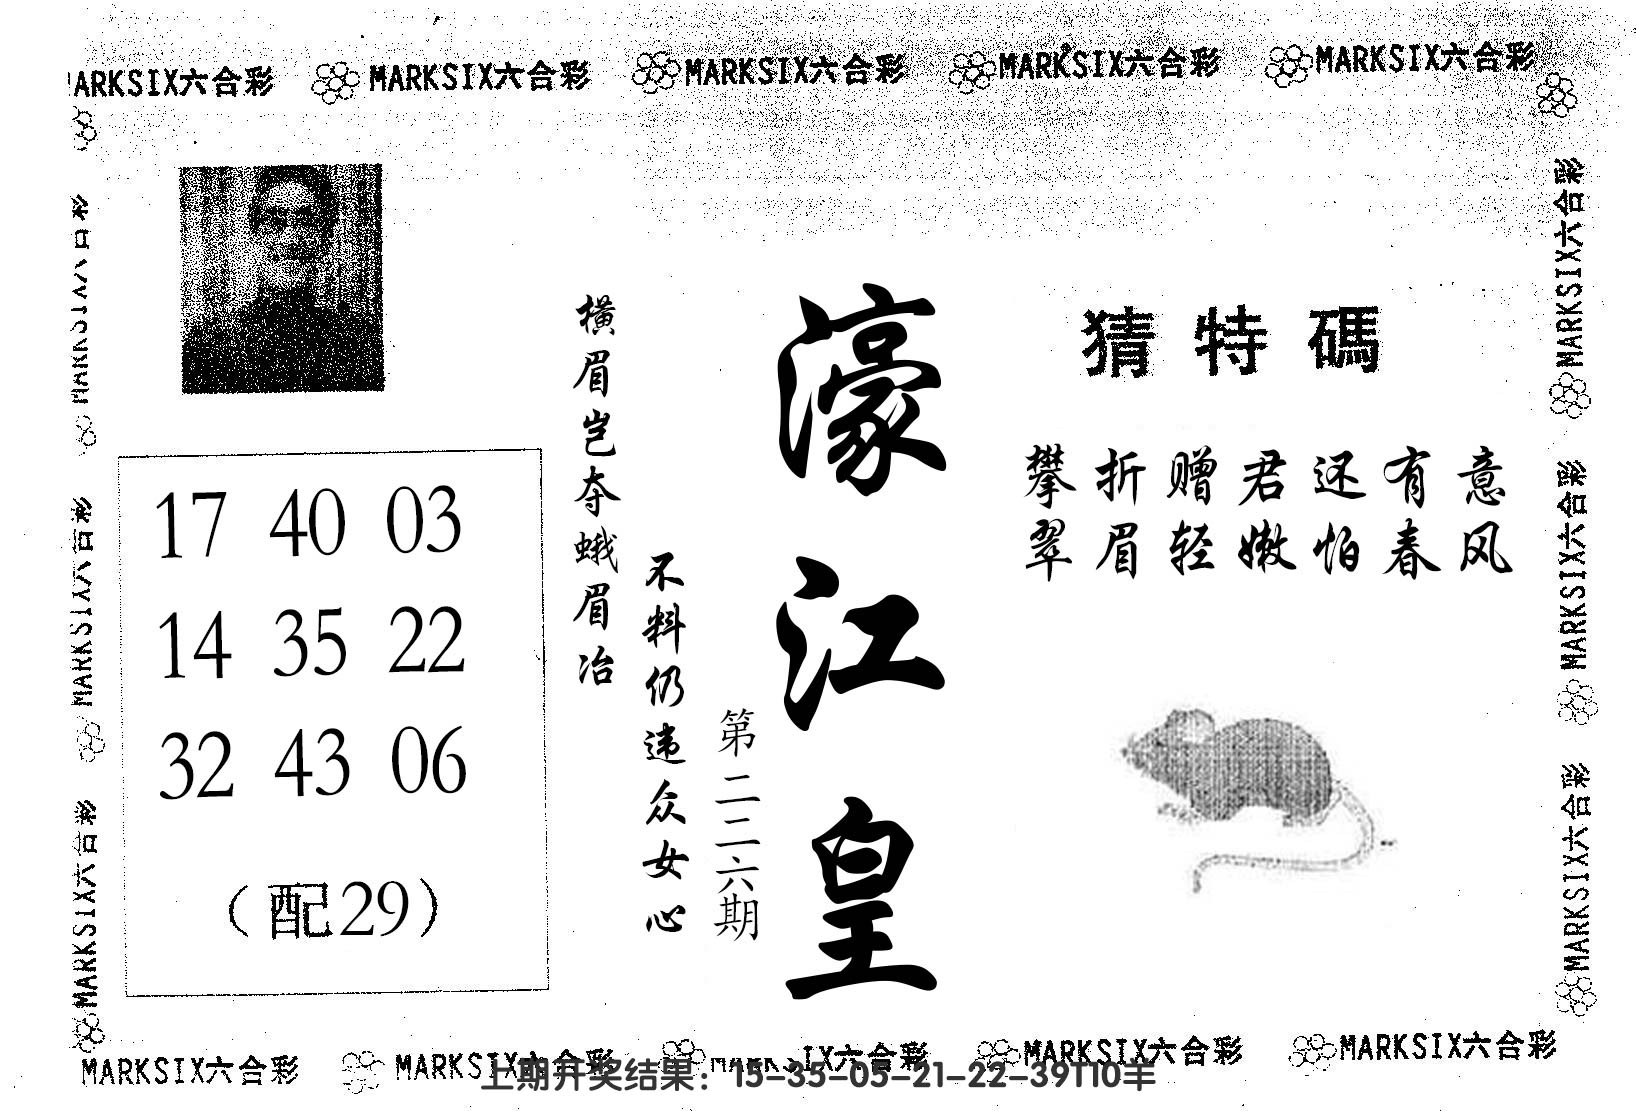 MARKSIX六合彩 MARKSIX六合彩 MARKSIX六合彩 MARKSIX六合彩 MARKSIX六合彩
MARKSIX六合彩
MARKSIX六合彩
MARKSIX六合彩
17 40 03
14 35 22
32 43 06
（配29）
橫眉岂夺蛾眉冶
不料仍违众女心
第二二六期
濠江皇
猜特碼
攀折赠君还有意
翠眉轻嫩怕春风
MARKSIX六合彩
MARKSIX六合彩
MARKSIX六合彩
MARKSIX六合彩 MARKSIX六合彩 MARKSIX六合彩 MARKSIX六合彩 MARKSIX六合彩
上期开奖结果：15-35-05-21-22-39T10羊